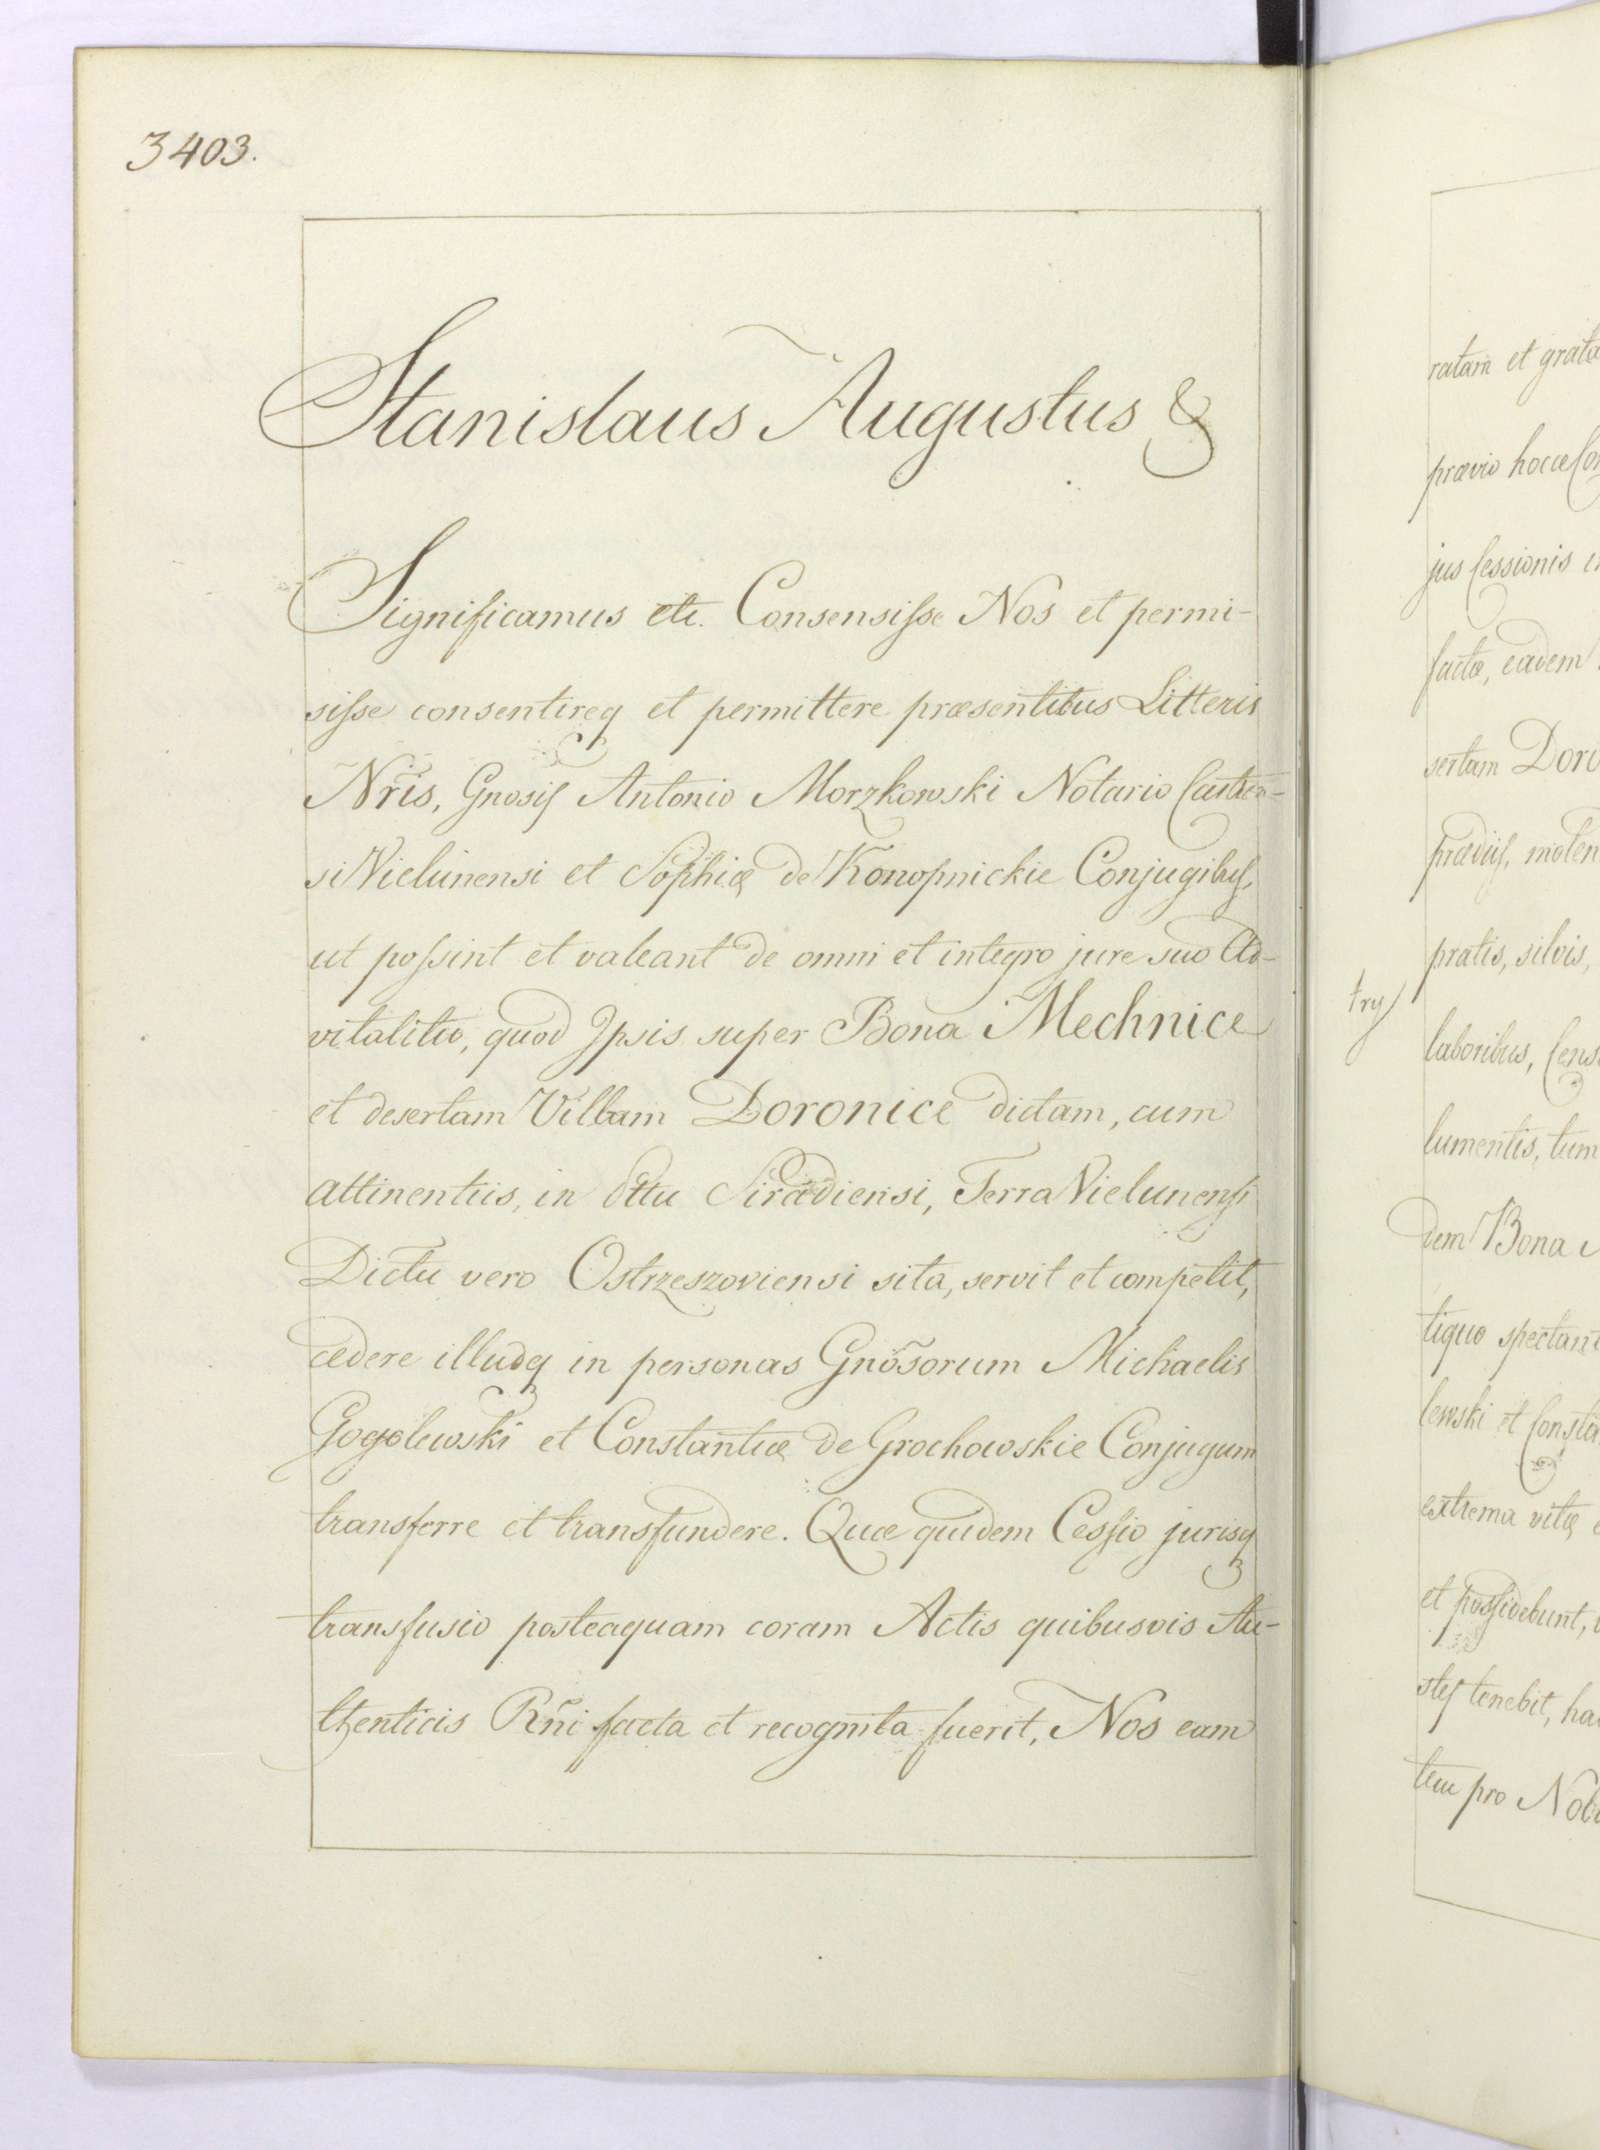 3403.
Stanislaus Augustus &
Significamus etc. Consensisse Nos et permi-
sisse consentireq et permittere præsentibus Litteris
Nr̃is, Gnosis Antonio Morzkowski Notario Castren-
si Vielunensi et Sophiæ de Konopnickie Conjugibus,
ut possint et valeant de omni et integro jure suo Ad-
vitalitio, quod Ipsis super Bona Mechnice
et desertam Villam Doronice dictam, cum
attinentiis, in Pttu Siradiensi, Terra Vielunensi
Dictu vero Ostrzeszoviensi sita, servit et competit,
cedere illudq in personas Gnõsorum Michaelis
Gogolewski et Constantiæ de Grochowskie Conjugum
transferre et transfundere. Quæ quidem Cessio jurisq
transfusio posteaquam coram Actis quibusvis Au-
thenticis Rñi facta et recognita fuerit, Nos eam
ratam et grata
prævio hocce Con
jus Cessionis
factæ, eadem
sertam Doro
prædijs, molen
pratis, silvis,
try
laboribus, Cens
lumentis, tum
dem Bona
tiquo spectan
lewski et Consta
extrema vitæ
et possidebunt,
tenebit, ha
pro Nob